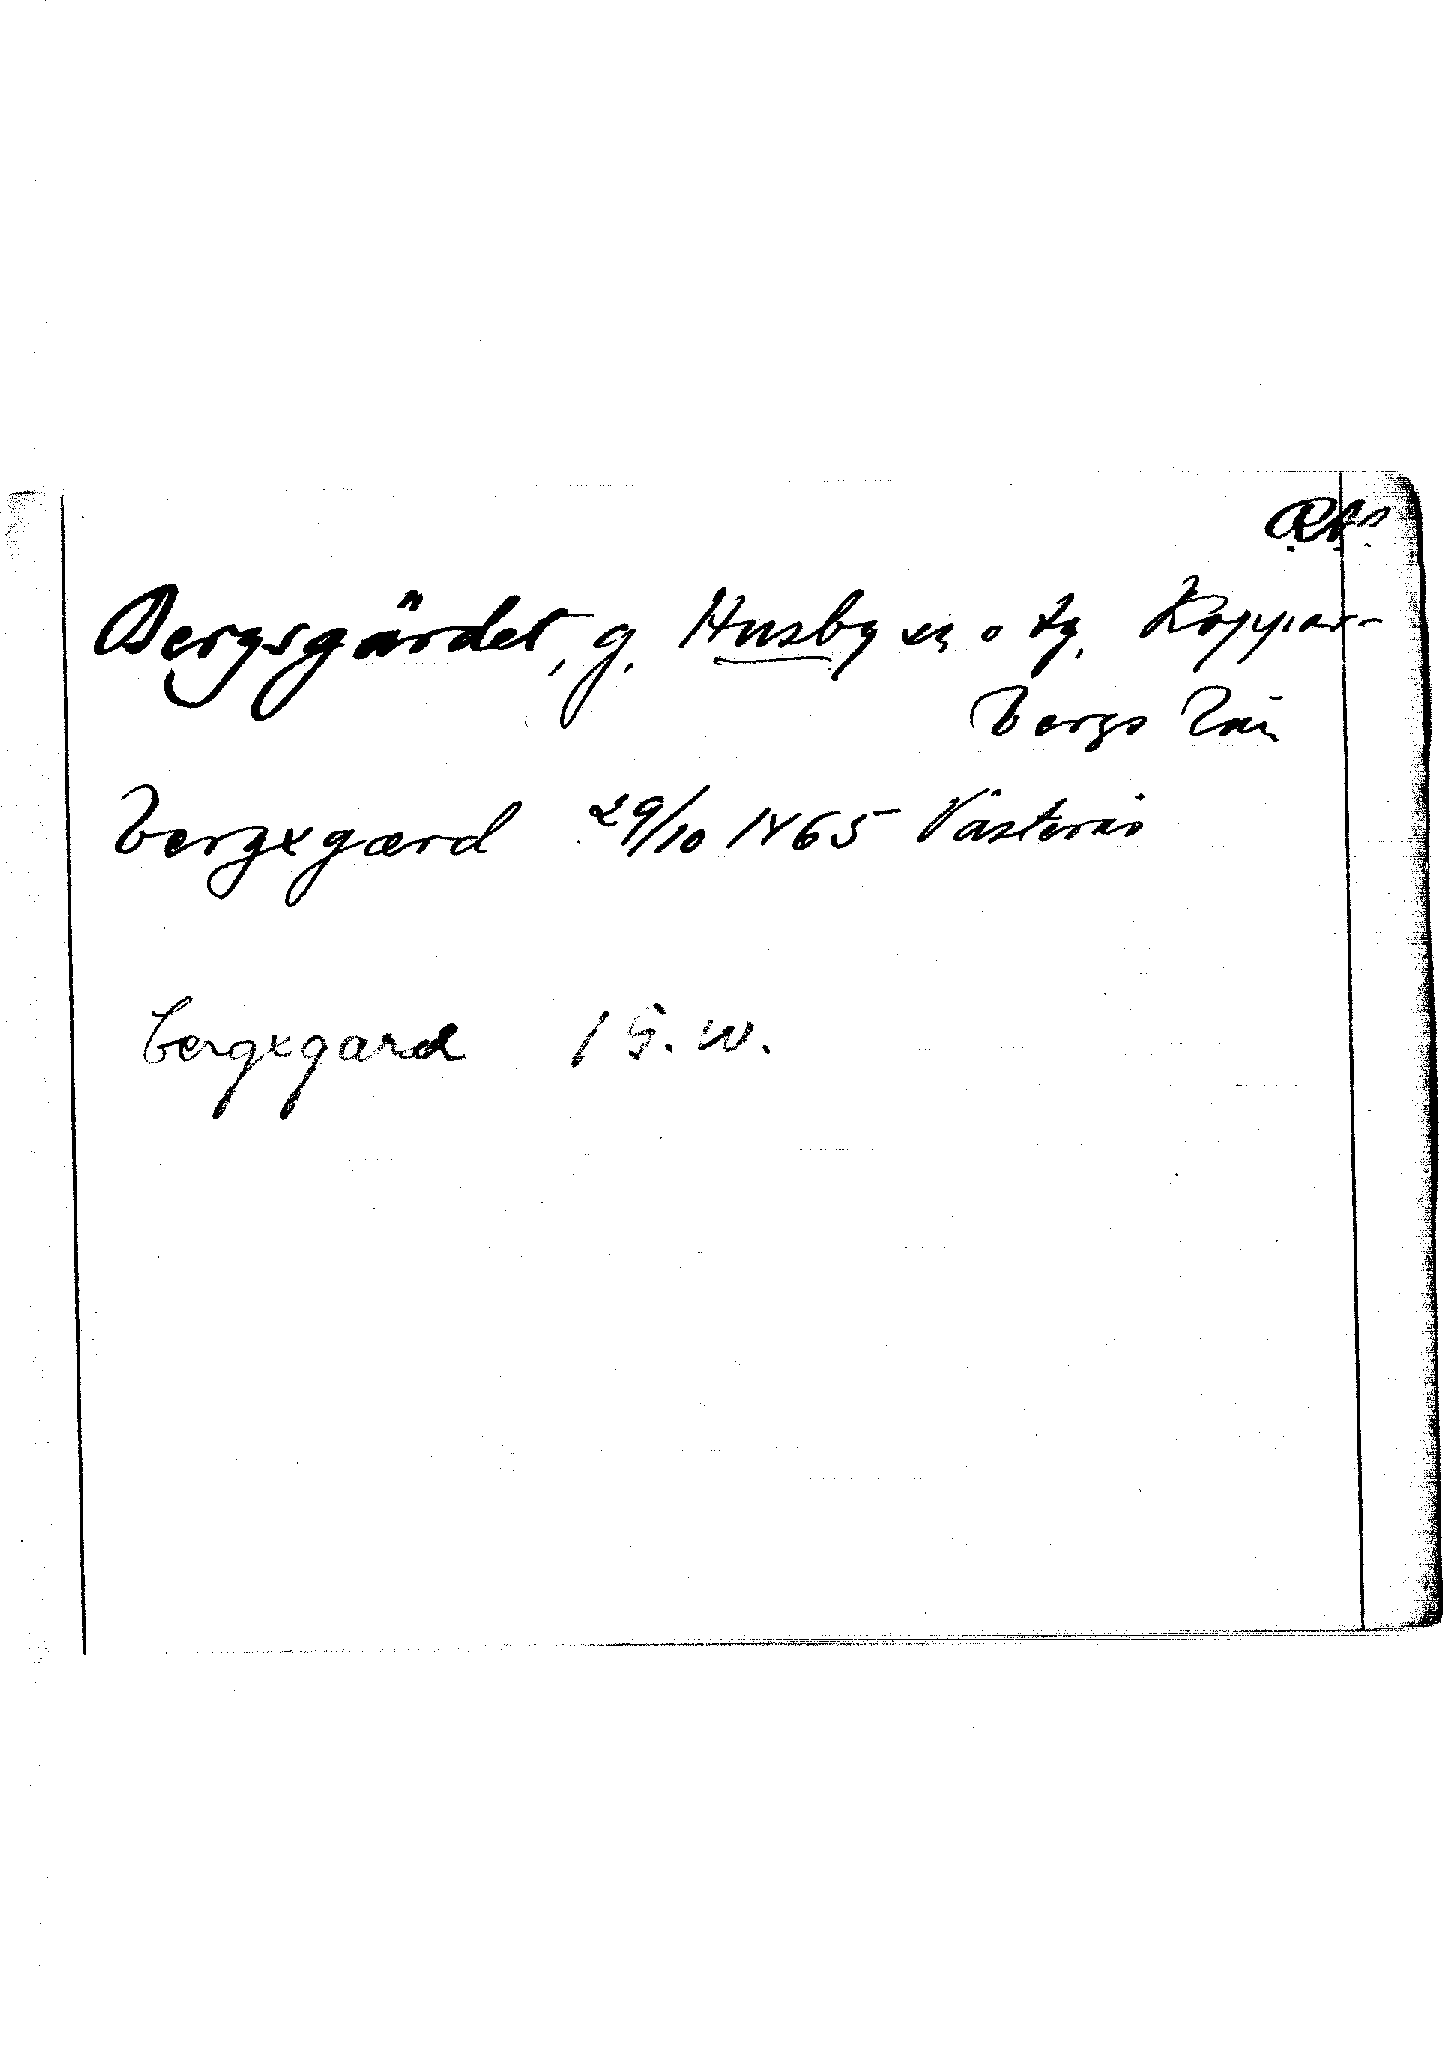 Bergsgärdet, g. Husby sn o tg. Koppar-
bergs län
bergxgærd 29/10 1465 Västerås
bergxgard